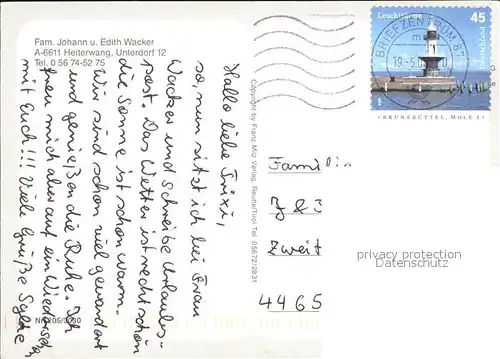 Fam. Johann u. Edith Wacker
A-6611 Heiterwang, Unterdorf 12
Tel. 0 56 74-52 75
Hallo liebe Trixi,
so, nun sitz ich bei Frau
Wacker und schreibe Urlaubs-
post. Das Wetter ist recht schön
die Sonne ist schon warm.
Wir sind schon viel gewandert
und genießen die Ruhe. Ich
freu mich aber auf ein Wiedersehn
mit Euch!!! Viele Grüße Sylke
Copyright by Franz Milz Verlag, Reutte/Tirol Tel. 05672/2831
Leuchttürme
45
Deutschland
BRIEFZENTRUM 67
BRUNSBÜTTEL, MOLE 1
Famili
J & J
Zweit
4465
privacy protection
Datenschutz